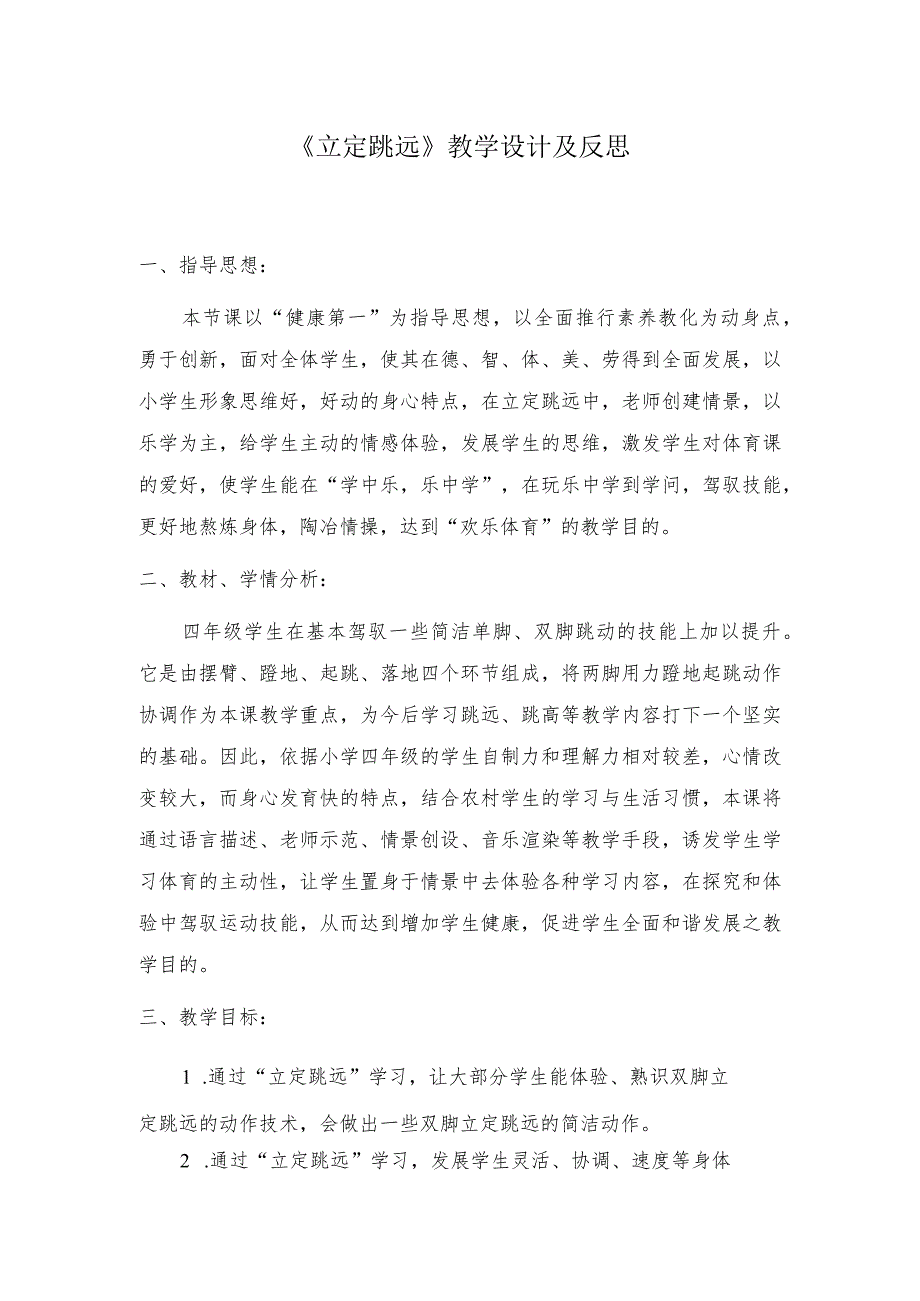 《立定跳远》教学设计及反思
一、指导思想：
本节课以“健康第一”为指导思想，以全面推行素养教化为动身点，
勇于创新，面对全体学生，使其在德、智、体、美、劳得到全面发展，以
小学生形象思维好，好动的身心特点，在立定跳远中，老师创建情景，以
乐学为主，给学生主动的情感体验，发展学生的思维，激发学生对体育课
的爱好，使学生能在“学中乐，乐中学”，在玩乐中学到学问，驾驭技能，
更好地熬炼身体，陶冶情操，达到“欢乐体育”的教学目的。
二、教材、学情分析：
四年级学生在基本驾驭一些简洁单脚、双脚跳动的技能上加以提升。
它是由摆臂、蹬地、起跳、落地四个环节组成，将两脚用力蹬地起跳动作
协调作为本课教学重点，为今后学习跳远、跳高等教学内容打下一个坚实
的基础。因此，依据小学四年级的学生自制力和理解力相对较差，心情改
变较大，而身心发育快的特点，结合农村学生的学习与生活习惯，本课将
通过语言描述、老师示范、情景创设、音乐渲染等教学手段，诱发学生学
习体育的主动性，让学生置身于情景中去体验各种学习内容，在探究和体
验中驾驭运动技能，从而达到增加学生健康，促进学生全面和谐发展之教
学目的。
三、教学目标：
1 .通过“立定跳远”学习，让大部分学生能体验、熟识双脚立
定跳远的动作技术，会做出一些双脚立定跳远的简洁动作。
2 .通过“立定跳远”学习，发展学生灵活、协调、速度等身体